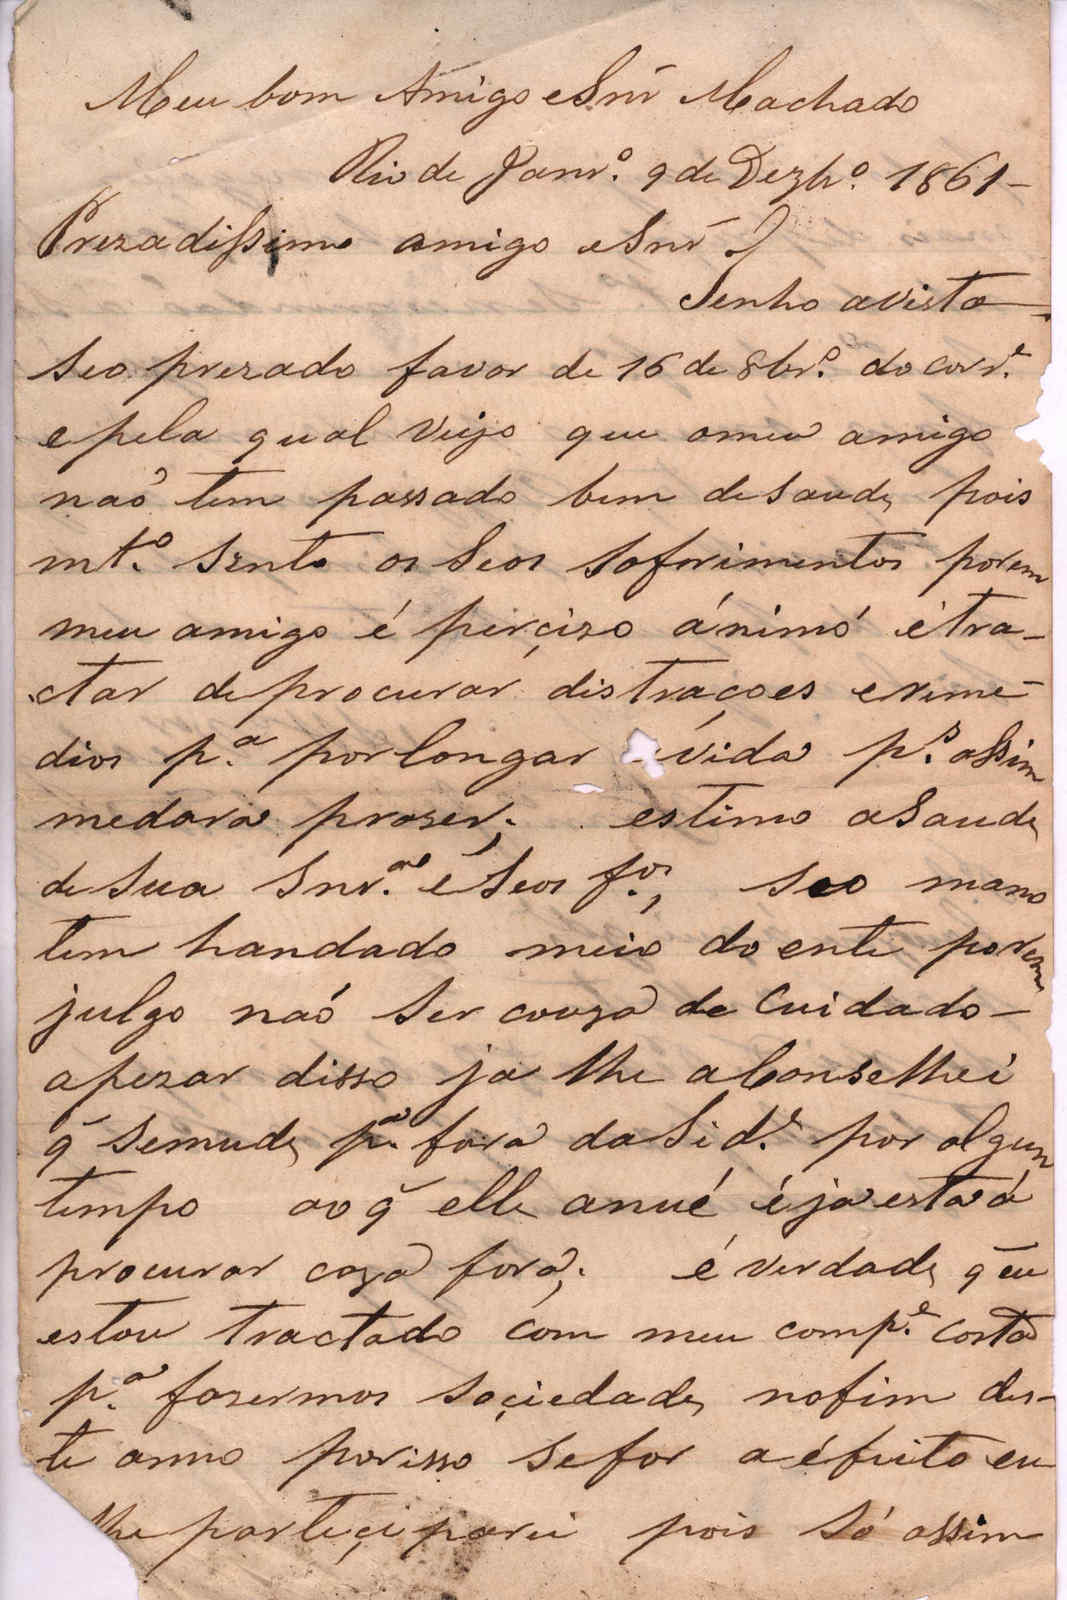 Meu bom Amigo e Snr̄ Machado
Rio de Janr.º 9 de Dezbr.º 1861 –
Prezadissimo amigo e Snr̄
Tenho avista
seo prezado favor de 16 de 8br.º do corr.e
e pela qual veijo que omeu amigo
naõ tem passado bem desaude, pois
mt.º sento os seos soferimentos porem
meu amigo é perçizo ánimó é tra-
ctar deprocurar distraçoes erime-
dios p.ª porlongar ávida p.s assim
medara praser; estimo asaude
de sua Snr.ª é Seos f.os, seo mano
tem handado meio doente porem
julgo naó ser couza de cuidado –
apezar disso ja lhe aConselhei
q̃ semude p.ª fora dasid.e por algun
tempo ao q̃ elle anué éja está á
procurar caza fora; é verdade q̃ eu
estou tractado com meu comp.e Costa
p.ª fazermos soçiedade, nofim des-
te anno porisso sefor a éfeito eu
lhe parteçiparei pois só assim